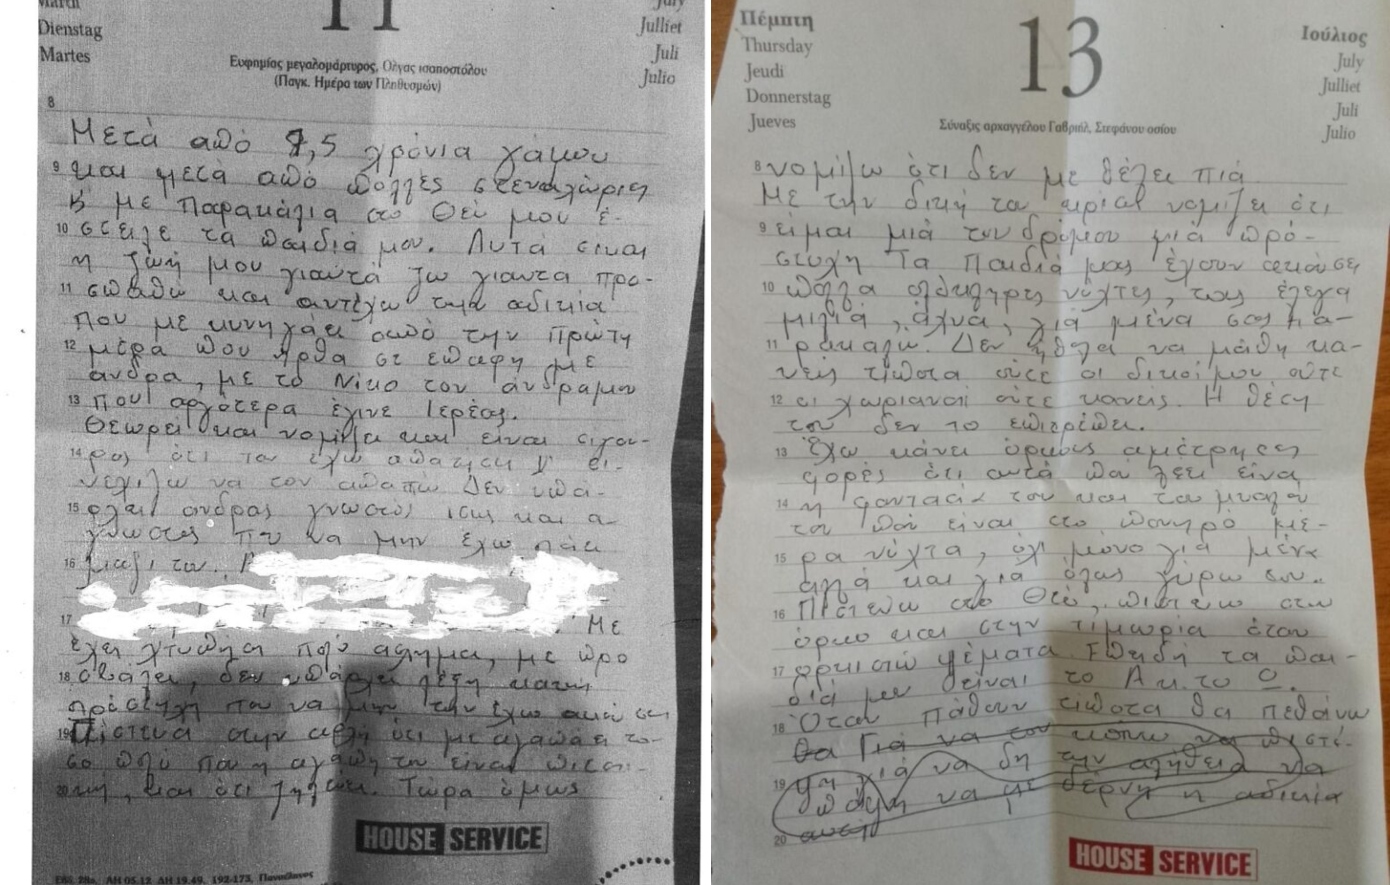 11
Martes
Dienstag
July
Julliet
Juli
Julio
Ευφημίας μεγαλομάρτυρος, Όλγας ισαποστόλου
(Παγκ. Ημέρα των Πληθυσμών)
8
Μετά από 9,5 χρόνια γάμου
9 και μετά από πολλές στεναχώριες
κ με παρακάλια στο Θεό μου έ-
10 στειλε τα παιδιά μου. Αυτά είναι
η ζωή μου γιαυτά ζω γιαυτα προ-
11 σπαθώ και αντέχω την αδικία
που με κυνηγάει από την πρώτη
12 μέρα που ήρθα σε επαφή με
άνδρα, με το Νίκο τον άνδραμου
13 που αργότερα έγινε Ιερέας.
Θεωρεί και νομίζει και είναι σιγου-
14 ρος ότι τον έχω απατήσει
να τον απατώ Δεν υπά-
15 ρχει άνδρας γνωστός ίσως και α-
γνωστος που να μην έχω πάει
16 μαζί του.
17 Με
έχει χτυπήσει πολύ άσχημα, με βρο
18 δεν υπάρχει λέξη κακή
πρόστυχη που να μην την έχω ακούσει
19 Πίστευα στην αρχή ότι με αγαπάει τό-
σο πολύ που η αγάπη του είναι
20 και ότι ζηλεύει. Τώρα όμως
HOUSE SERVICE
Πέμπτη
Thursday
Jeudi
Donnerstag
Jueves
13
Ιούλιος
July
Julliet
Juli
Julio
Σύναξις αρχαγγέλου Γαβριήλ, Στεφάνου οσίου
8 νομίζω ότι δεν με θέλει πιά
Με την δική του κρίση νομίζει ότι
9 είμαι μιά του δρόμου μιά πρό-
στυχη Τα παιδιά μας έχουν ακούσει
10 πολλά ολόκληρες νύχτες, τους έλεγα
μιλιά, άχνα, γιά μένα σας πα-
11 ρακαλω. Δεν ήθελα να μάθη κα-
νείς τίποτα ούτε οι δικοί μου ούτε
12 οι χωριανοί ούτε κανείς. Η θέση
του δεν το επιτρέπει.
13 Έχω κάνει όρκους αμέτρητες
φορές ότι αυτά που λέει είναι
14 η φαντασία του και του μυαλού
του που είναι στο πονηρό μέ-
15 ρα νύχτα, όχι μόνο γιά μένα
αλλά και για όλους γύρω του..
16 Πιστευω στο Θεό, πιστευω στον
όρκο και στην τιμωρία όταν
17 ορκιστώ ψέματα Επειδή τα παι-
διά μου είναι το Α κ. το Ω.
18 Όταν πάθουν τίποτα θα πεθάνω
θα Γιά να τον κάνω να πιστέ-
19 ψη γιά να δη την αλήθεια να
πάψη να με δέρνη η αδικία
20 αυτή
HOUSE SERVICE